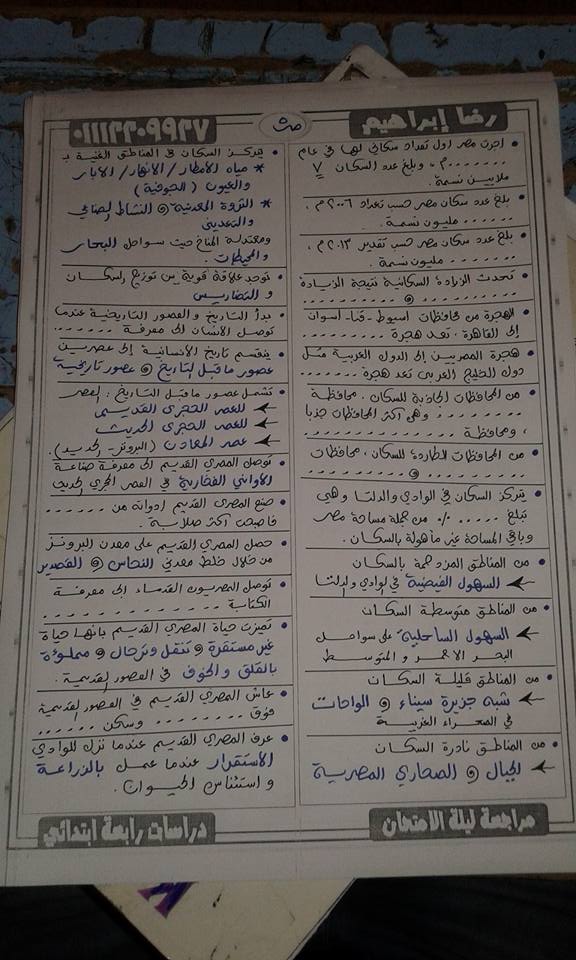 رضا إبراهيم
٠١١١٢٢٠٩٩٢٧
• اجرت مصر اول تعداد سكاني لها في عام
........ م، وبلغ عدد السكان ٧
ملايين نسمة.
• بلغ عدد سكان مصر حسب تعداد ٢٠٠٦م،
...... مليون نسمة.
• بلغ عدد سكان مصر حسب تقدير ٢٠١٣م،
...... مليون نسمة.
• تحدث الزيادة السكانية نتيجة الزيادة
........ و ........
• الهجرة من محافظات اسيوط - قنا - أسوان
إلى القاهرة، تعد هجرة ......
• هجرة المصريين إلى الدول العربية مثل
دول الخليج العربي تعد هجرة ......
• من المحافظات الجاذبة للسكان، محافظة
........ وهي اكثر المحافظات جذبا
، ومحافظة ........
• من المحافظات الطاردة للسكان، محافظات
........ و ........
• يتركز السكان في الوادي والدلتا وهي
تبلغ ...... ٪ من جملة مساحة مصر
وباقي المساحة غير مأهولة بالسكان.
• من المناطق المزدحمة بالسكان
← السهول الفيضية في الوادي والدلتا
• من المناطق متوسطة السكان
← السهول الساحلية على سواحل
البحر الاحمر والمتوسط
• من المناطق قليلة السكان
← شبه جزيرة سيناء و الواحات
في الصحراء الغربية
• من المناطق نادرة السكان
← الجبال و الصحاري المصرية
• يتركز السكان في المناطق الغنية بـ
* مياه الأمطار / الأنهار / الآبار
والعيون (الجوفية)
* الثروة المعدنية و النشاط الصناعي
والتعديني
ومعتدلة المناخ حيث سواحل البحار
والمحيطات.
• توجد علاقة قوية بين توزيع السكان
و التضاريس
• بدأ التاريخ والعصور التاريخية عندما
توصل الأنسان إلى معرفة ......
• ينقسم تاريخ الأنسانية إلى عصرين
عصور ماقبل التاريخ و عصور تاريخية
• تشمل عصور ماقبل التاريخ : العصر
← العصر الحجري القديم
← العصر الحجري الحديث
← عصر المعادن (البرونز - الحديد).
• توصل المصري القديم إلى معرفة صناعة
الأواني الفخارية في العصر الحجري الحديث
• صنع المصري القديم ادواته من ......
فأصبحت أكثر صلابة.
• حصل المصري القديم على معدن البرونز
من خلال خلط معدني النحاس و القصدير
• توصل المصريون القدماء إلى معرفة
الكتابة ........
• تميزت حياة المصري القديم بأنها حياة
غير مستقرة و تنقل وترحال و مملوءة
بالقلق والخوف في العصور القديمة.
• عاش المصري القديم في العصور القديمة
فوق ........ وسكن ......
• عرف المصري القديم عندما نزل للوادي
الاستقرار عندما عمل بالزراعة
و استئناس الحيوان.
مراجعة ليلة الامتحان
دراسات رابعة ابتدائي